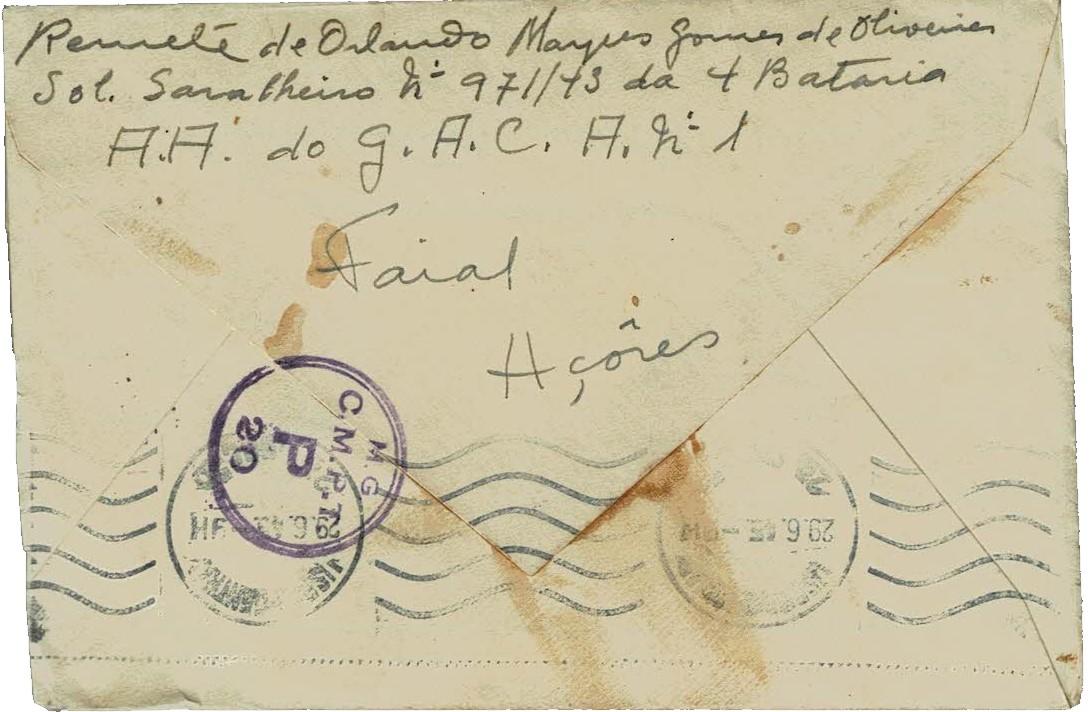 Remete de Orlando Marques Gomes de Oliveira
Sol. Saralheiro Nº 971/43 da 4 Bataria
A.A. do G. A. C. A. Nº 1
Faial
Açôres
M.G
C.M.P.-T.
P
20
29.6.43.-9H
29.6.43-9H